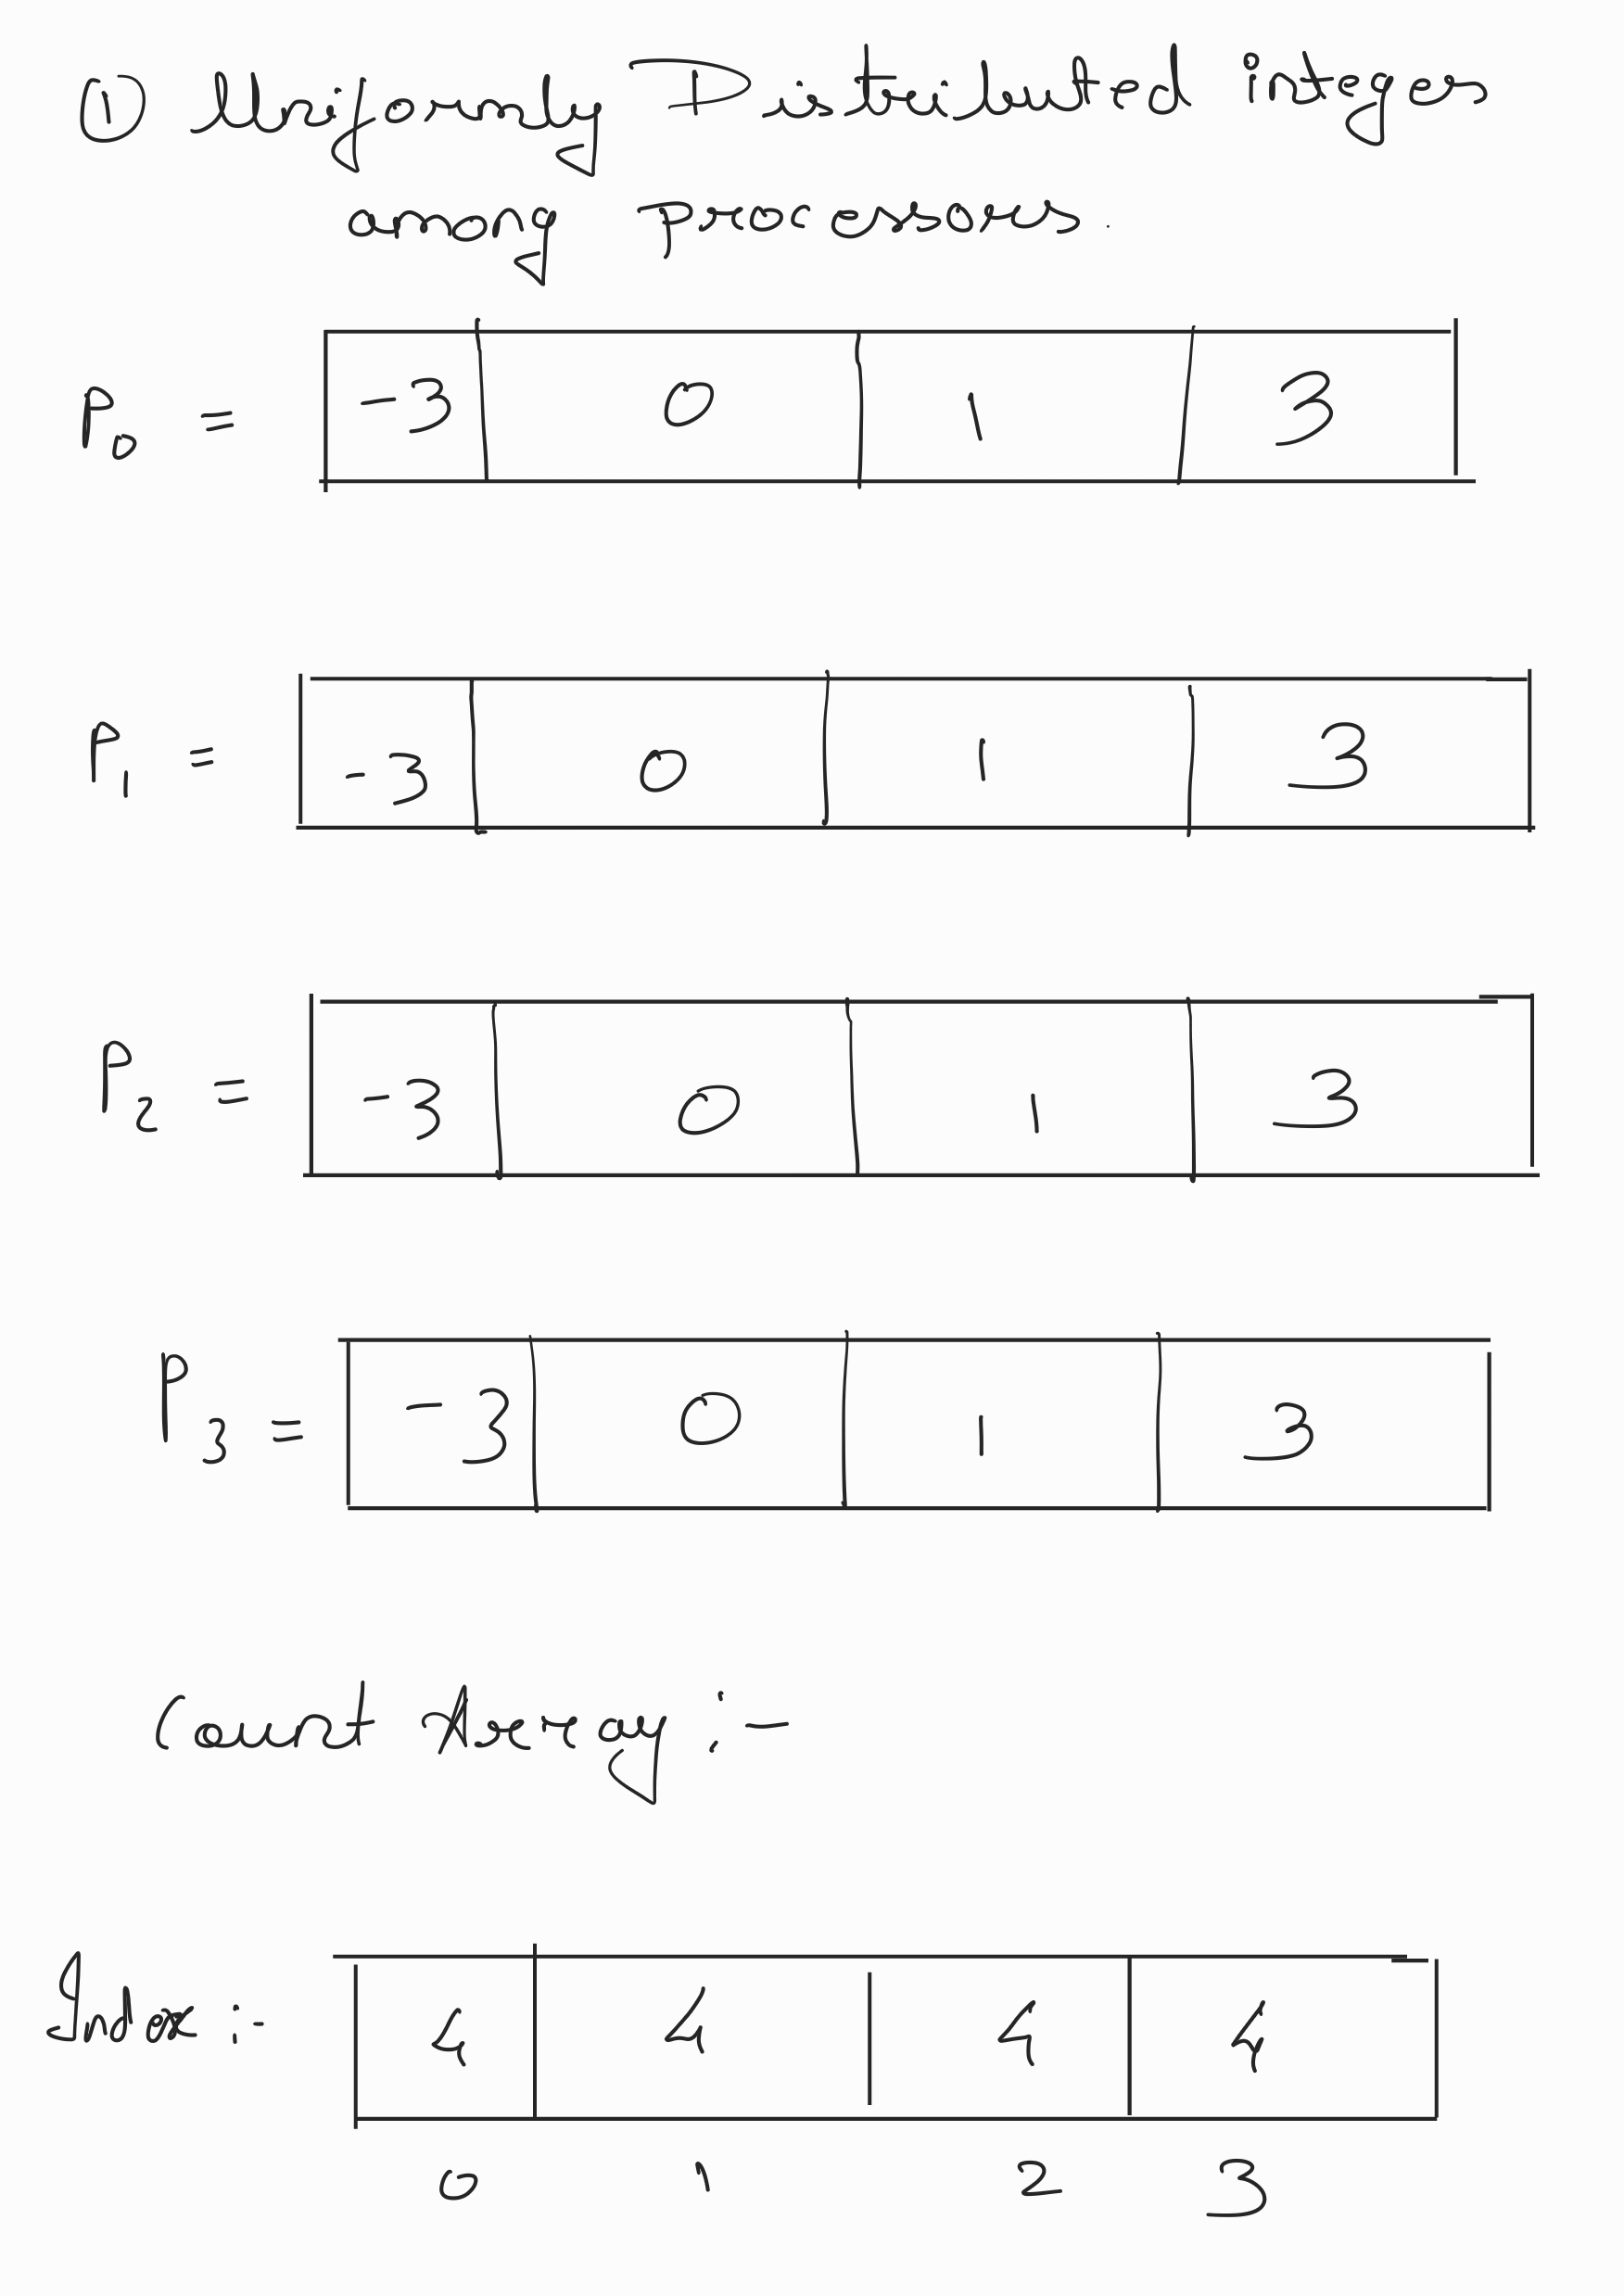 ① Unijouney Distributed integes
among processors.
P0 = -3 0 1 3
P1 = -3 0 1 3
P2 = -3 0 1 3
P3 = -3 0 1 3
Count Array :-
Index :- 4 4 4 4
0 1 2 3